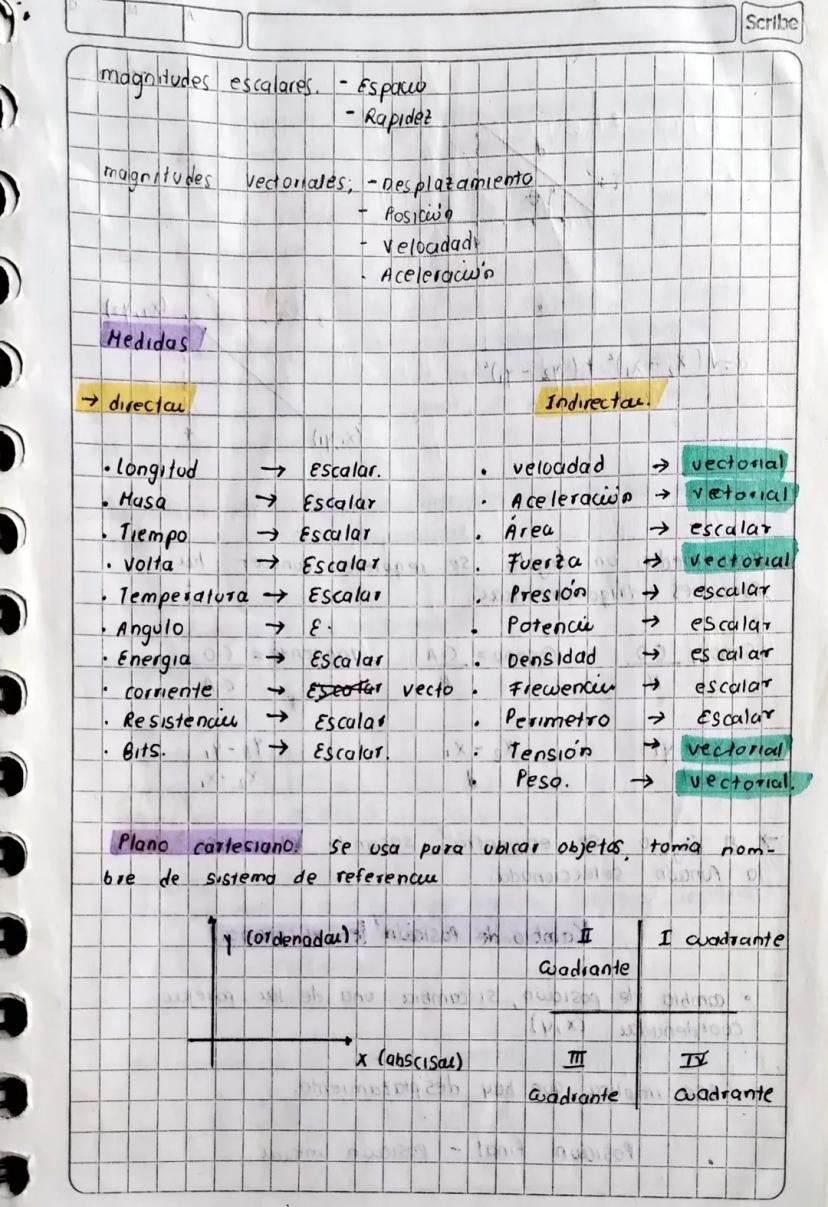 Scribe
magnitudes escalares. - Espacio
- Rapidez
magnitudes vectoriales; - Desplazamiento
- Posición
- velocidad
- Aceleración
Medidas
→ directas
Indirectas.
• Longitud → Escalar. • velocidad → vectorial
• Masa → Escalar • Aceleración → vetorial
• Tiempo → Escalar • Área → escalar
• volta → Escalar • Fuerza → vectorial
• Temperatura → Escalar • Presión → escalar
• Angulo → E. • Potencia → escalar
• Energia → Escalar • Densidad → escalar
• corriente → Escalar vecto • Frecuencia → escalar
• Resistencia → Escalar • Perimetro → Escalar
• Bits. → Escalar. • Tensión → vectorial
• Peso. → vectorial.
Plano cartesiano. se usa para ubicar objetos, toma nom-
bre de sistema de referencia
y (ordenadas)
x (abscisas)
II I cuadrante
cuadrante
III IV
cuadrante cuadrante